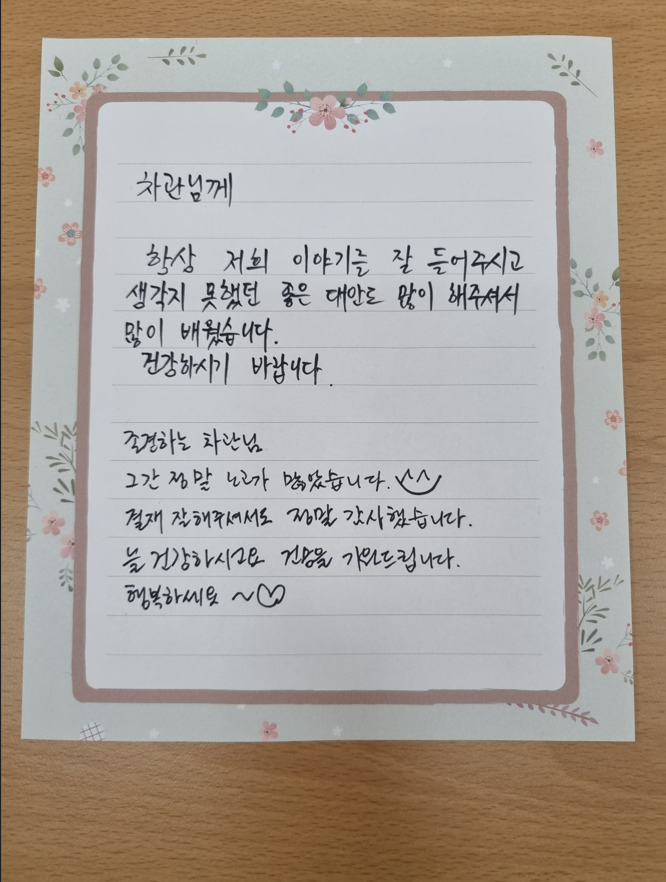 차관님께
항상 저희 이야기를 잘 들어주시고
생각지 못했던 좋은 대안도 많이 해주셔서
많이 배웠습니다.
건강하시기 바랍니다.
존경하는 차관님
그간 정말 노고가 많았습니다. ^^
결재 잘해주셔서도 정말 감사했습니다.
늘 건강하시고요 건승을 기원드립니다.
행복하세요 ~♡